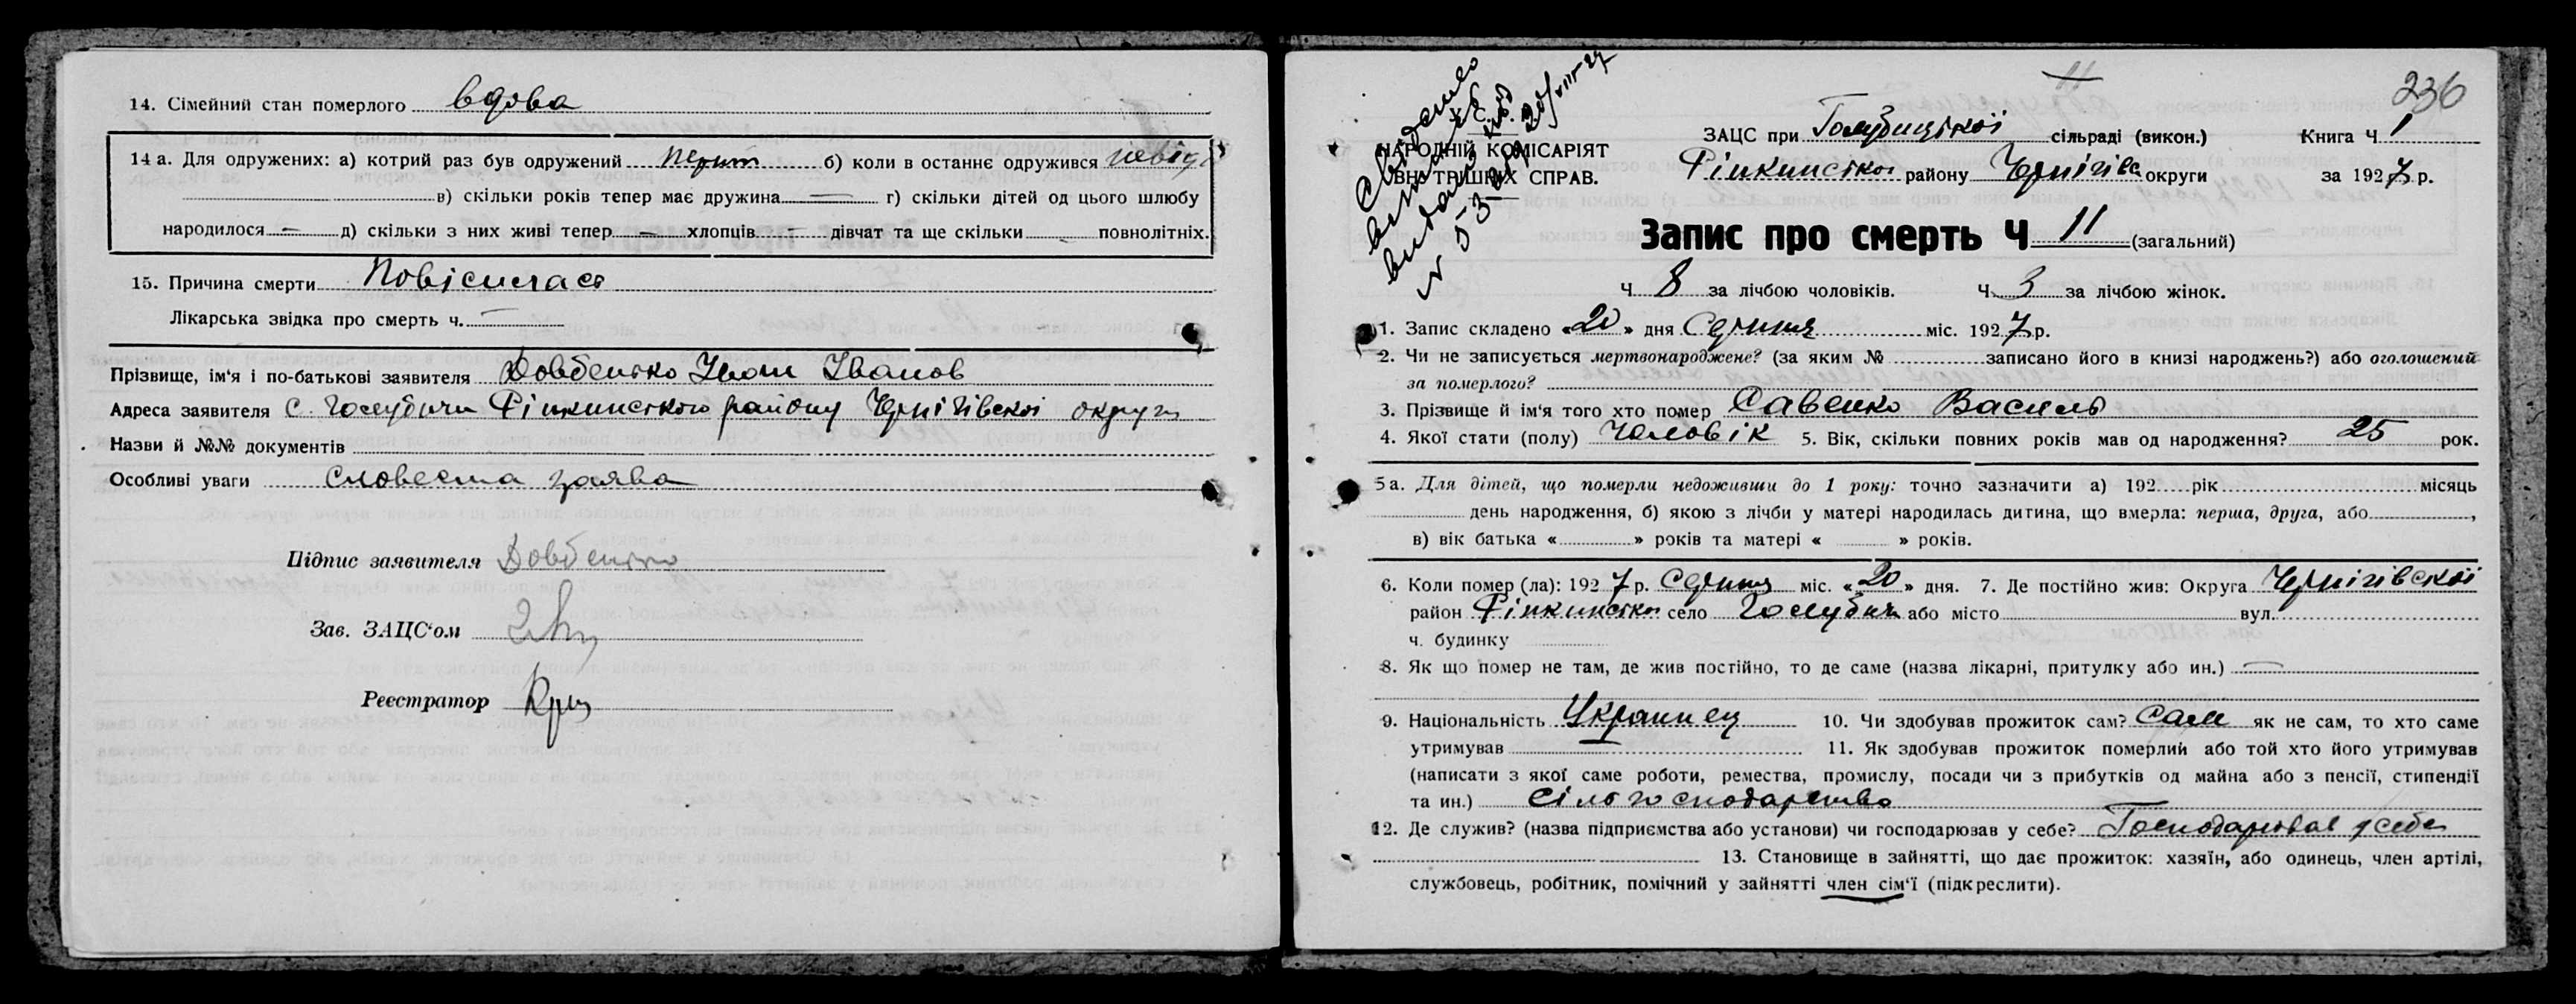 14. Сімейний стан померлого вдова
14 а. Для одружених: а) котрий раз був одружений перш б) коли в останнє одружився невідо
в) скільки років тепер має дружина — г) скільки дітей од цього шлюбу
народилося — д) скільки з них живі тепер — хлопців — дівчат та ще скільки — повнолітніх.
15. Причина смерти Повісилась
Лікарська звідка про смерть ч. —
Прізвище, ім'я і по-батькові заявителя Довбенько Іван Іванов
Адреса заявителя с. Голубичи Ріпкинского району Чернігівскоі округи
Назви й №№ документів
Особливі уваги Словесна заява
Підпис заявителя Довбенько
Зав. ЗАЦС'ом
Реєстратор
236
11
Свідоцтво
видано
№ 53
НАРОДНІЙ КОМІСАРІЯТ
ВНУТРІШНІХ СПРАВ.
ЗАЦС при Голубицькоі сільраді (викон.) Книга Ч 1
Ріпкинсько району Чернігівс округи за 1927 р.
Запис про смерть Ч 11 (загальний)
Ч 8 за лічбою чоловіків. Ч 3 за лічбою жінок.
1. Запис складено «20» дня Серпня міс. 1927 р.
2. Чи не записується мертвонароджене? (за яким № записано його в книзі народжень?) або оголошений
за померлого?
3. Прізвище й ім'я того хто помер Савенко Василь
4. Якої стати (полу) Чоловік 5. Вік, скільки повних років мав од народження? 25 рок.
5 а. Для дітей, що померли недоживши до 1 року: точно зазначити а) 192 рік місяць
день народження, б) якою з лічби у матері народилась дитина, що вмерла: перша, друга, або ,
в) вік батька « » років та матері « » років.
6. Коли помер (ла): 1927 р. Серпня міс. «20» дня. 7. Де постійно жив: Округа Чернігівскоі
район Ріпкинсько село Голубич або місто вул.
ч. будинку
8. Як що помер не там, де жив постійно, то де саме (назва лікарні, притулку або ин.) —
9. Національність Українец 10. Чи здобував прожиток сам? Сам як не сам, то хто саме
утримував 11. Як здобував прожиток померлий або той хто його утримував
(написати з якої саме роботи, ремества, промислу, посади чи з прибутків од майна або з пенсії, стипендії
та ин.) сільгосподарство
12. Де служив? (назва підприємства або установи) чи господарював у себе? Господарював у себе
13. Становище в зайнятті, що дає прожиток: хазяїн, або одинець, член артілі,
службовець, робітник, помічний у зайнятті член сім'ї (підкреслити).